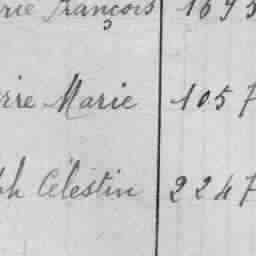 rie François 1695
rre Marie 1057
ph Célestin 2247